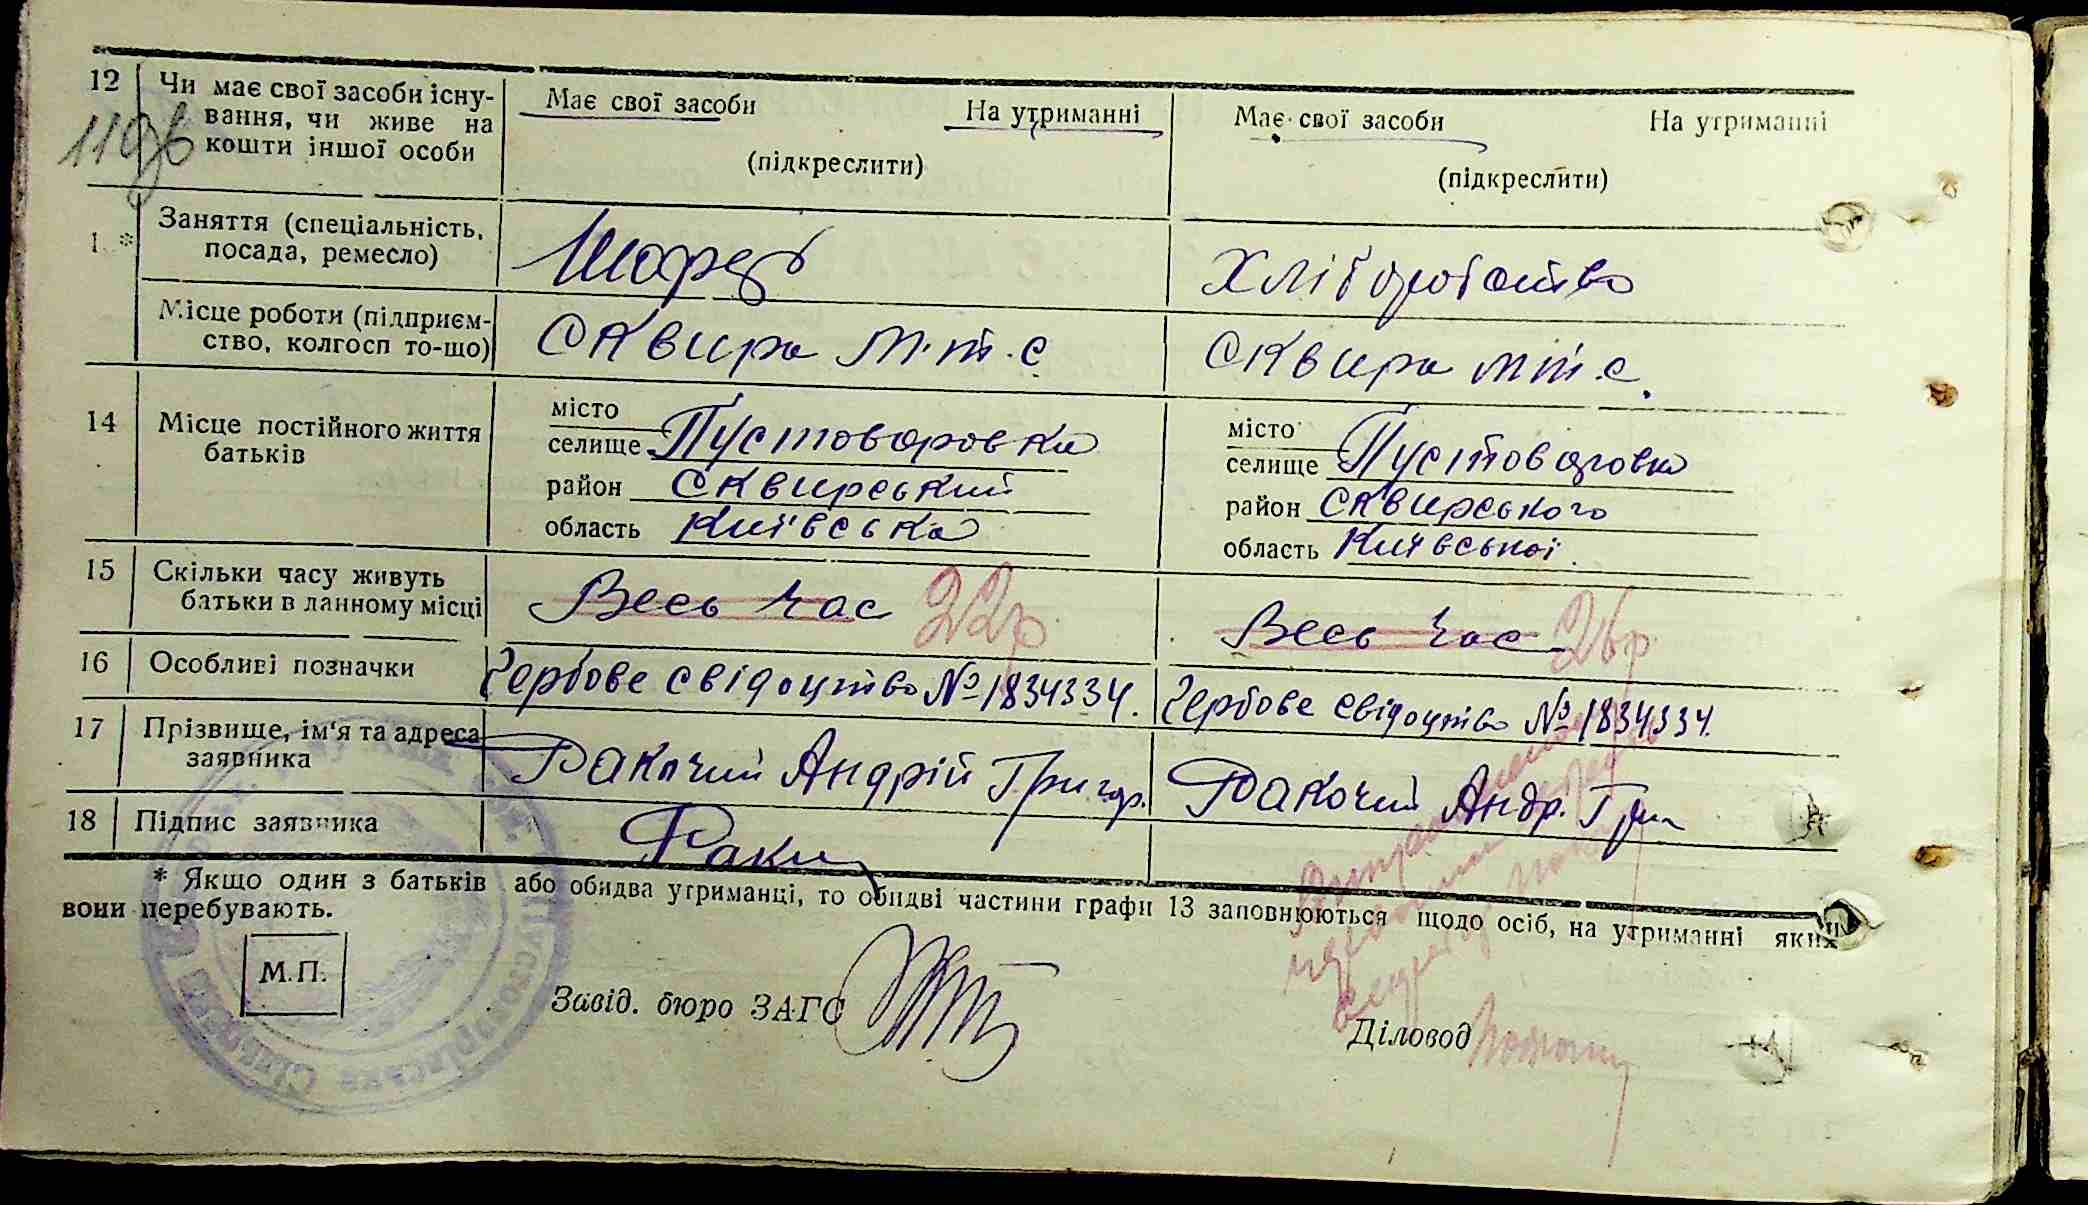 12 Чи має свої засоби існу- Має свої засоби На утриманні Має свої засоби На утриманні
вання, чи живе на
кошти іншої особи (підкреслити) (підкреслити)
119зв
1 * Заняття (спеціальність, Шофер Хліборобство
посада, ремесло)
Місце роботи (підприєм- Сквира м.т.с Сквира м.т.с.
ство, колгосп то-що)
14 Місце постійного життя місто місто
батьків селище Пустоваровка селище Пустоваровка
район Сквирський район Сквирського
область Київська область Київської
15 Скільки часу живуть Весь час 22р Весь час 26р
батьки в данному місці
16 Особливі позначки Гербове свідоцтво №1834334. Гербове свідоцтво №1834334.
17 Прізвище, ім'я та адреса Ракочий Андрій Григор. Ракочий Андр. Григ
заявника
18 Підпис заявника Раки
* Якщо один з батьків або обидва утриманці, то обидві частини графи 13 заповнюються щодо осіб, на утриманні яких
вони перебувають.
М.П.
Завід. бюро ЗАГС
Діловод